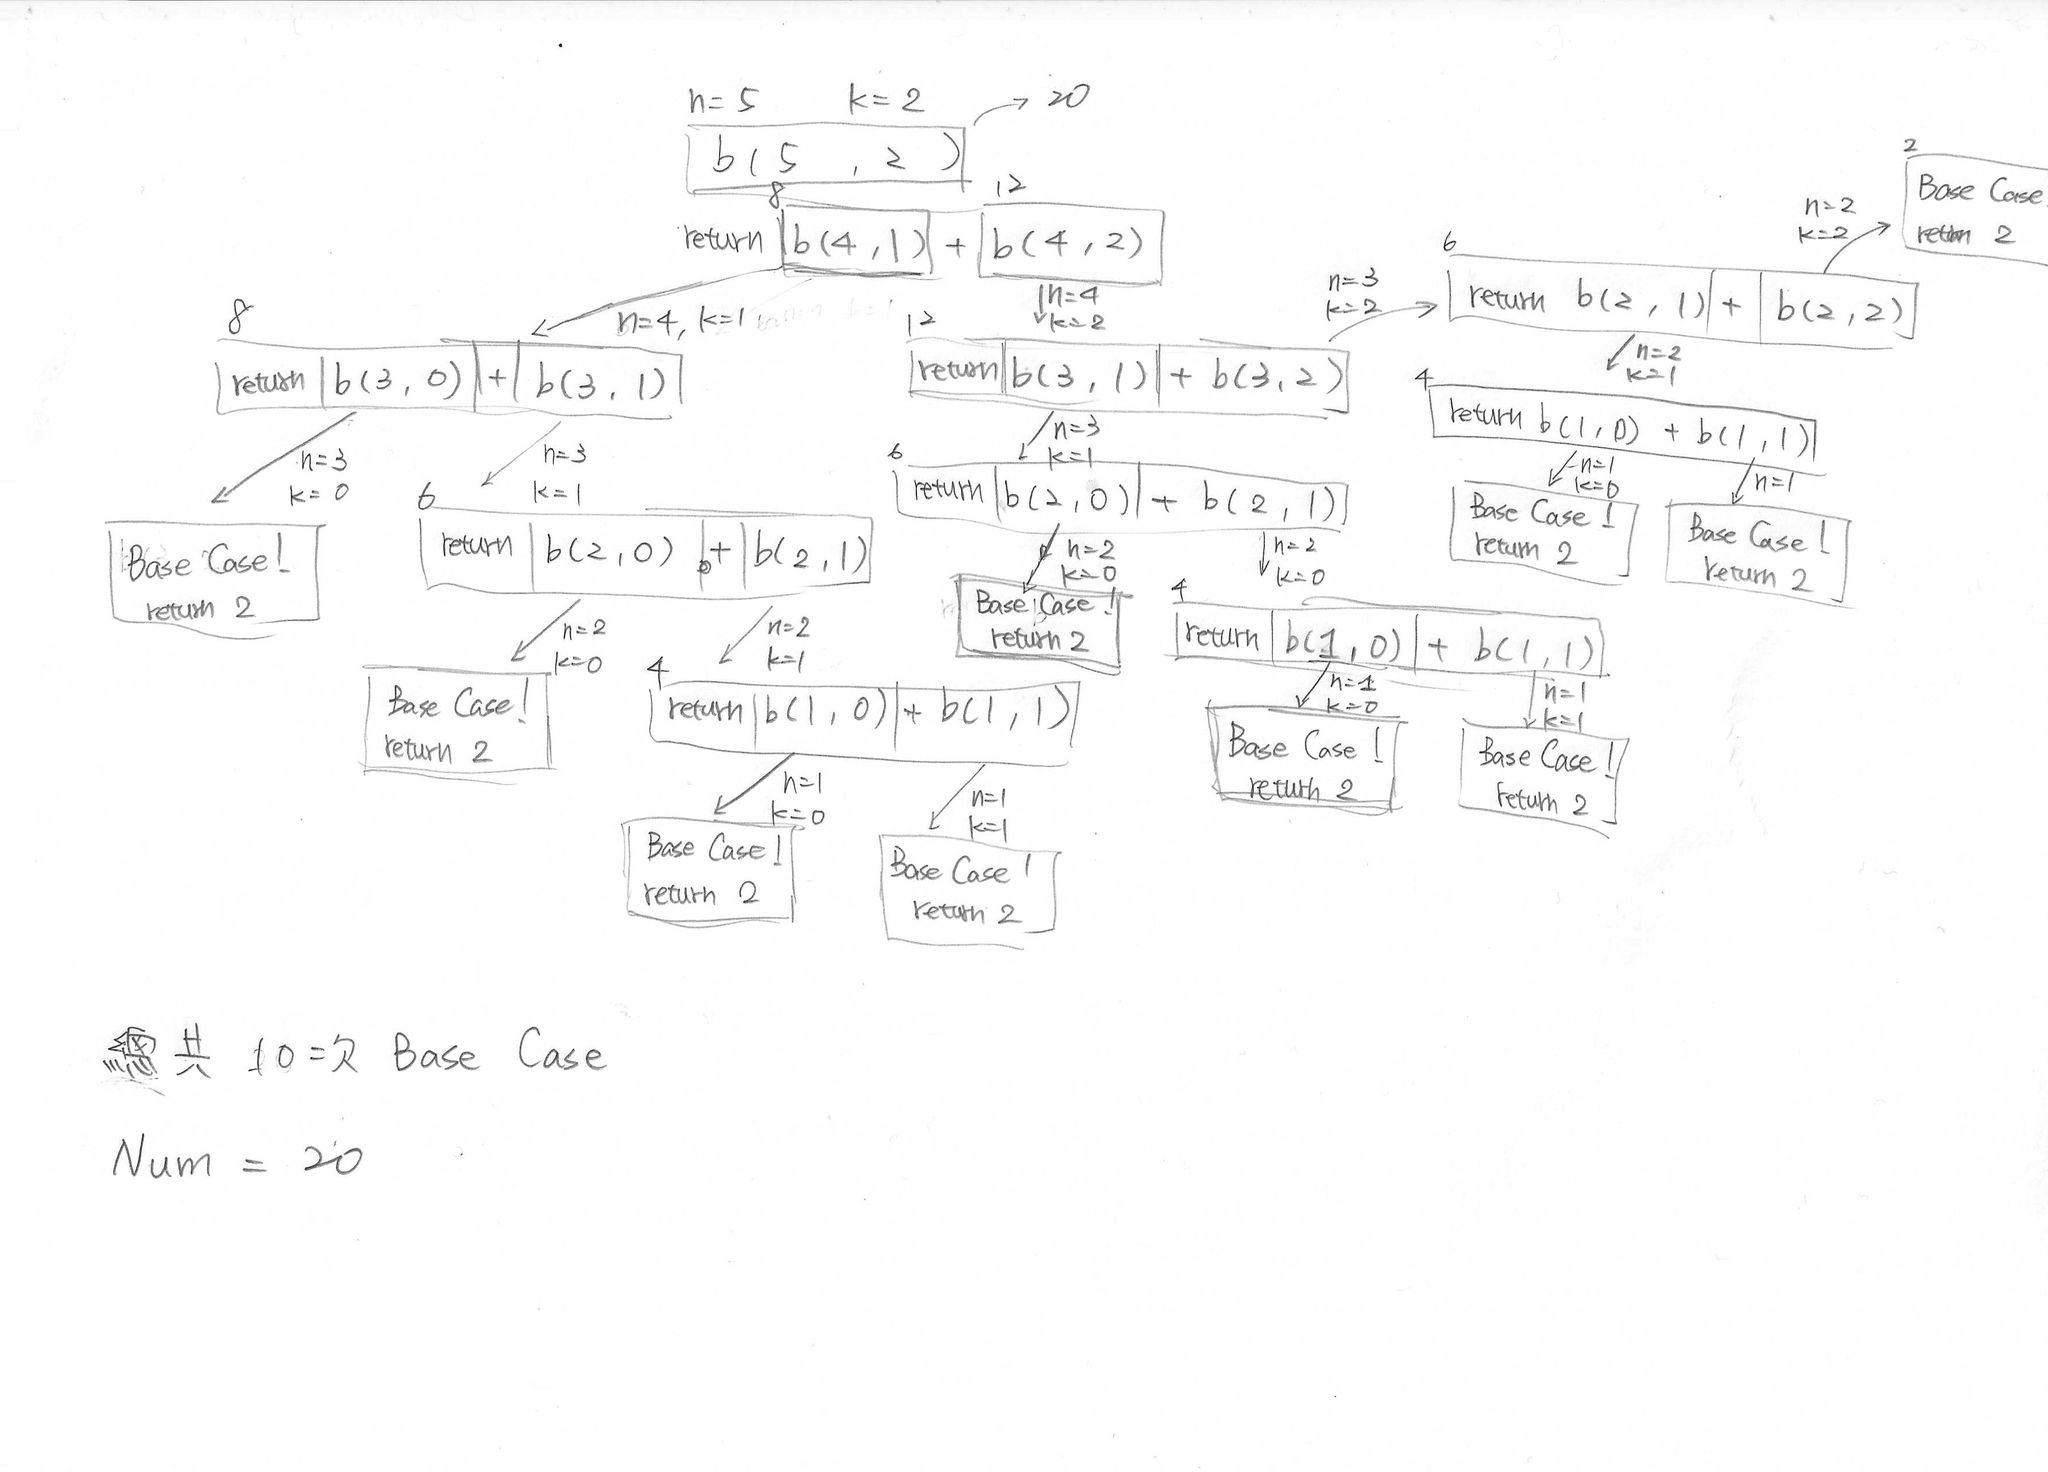 n=5 k=2 → 20
b(5 , 2)
8 12
return b(4,1) + b(4,2)
n=4, k=1
n=4
k=2
8
return b(3,0) + b(3,1)
n=3
k=0
Base Case!
return 2
n=3
k=1
6
return b(2,0) + b(2,1)
n=2
k=0
Base Case!
return 2
n=2
k=1
4
return b(1,0) + b(1,1)
n=1
k=0
Base Case!
return 2
n=1
k=1
Base Case!
return 2
12
return b(3,1) + b(3,2)
n=3
k=1
6
return b(2,0) + b(2,1)
n=2
k=0
Base Case!
return 2
n=2
k=0
4
return b(1,0) + b(1,1)
n=1
k=0
Base Case!
return 2
n=1
k=1
Base Case!
return 2
n=3
k=2
6
return b(2,1) + b(2,2)
n=2
k=2
2
Base Case!
return 2
n=2
k=1
4
return b(1,0) + b(1,1)
n=1
k=0
Base Case!
return 2
n=1
Base Case!
return 2
總共 10次 Base Case
Num = 20